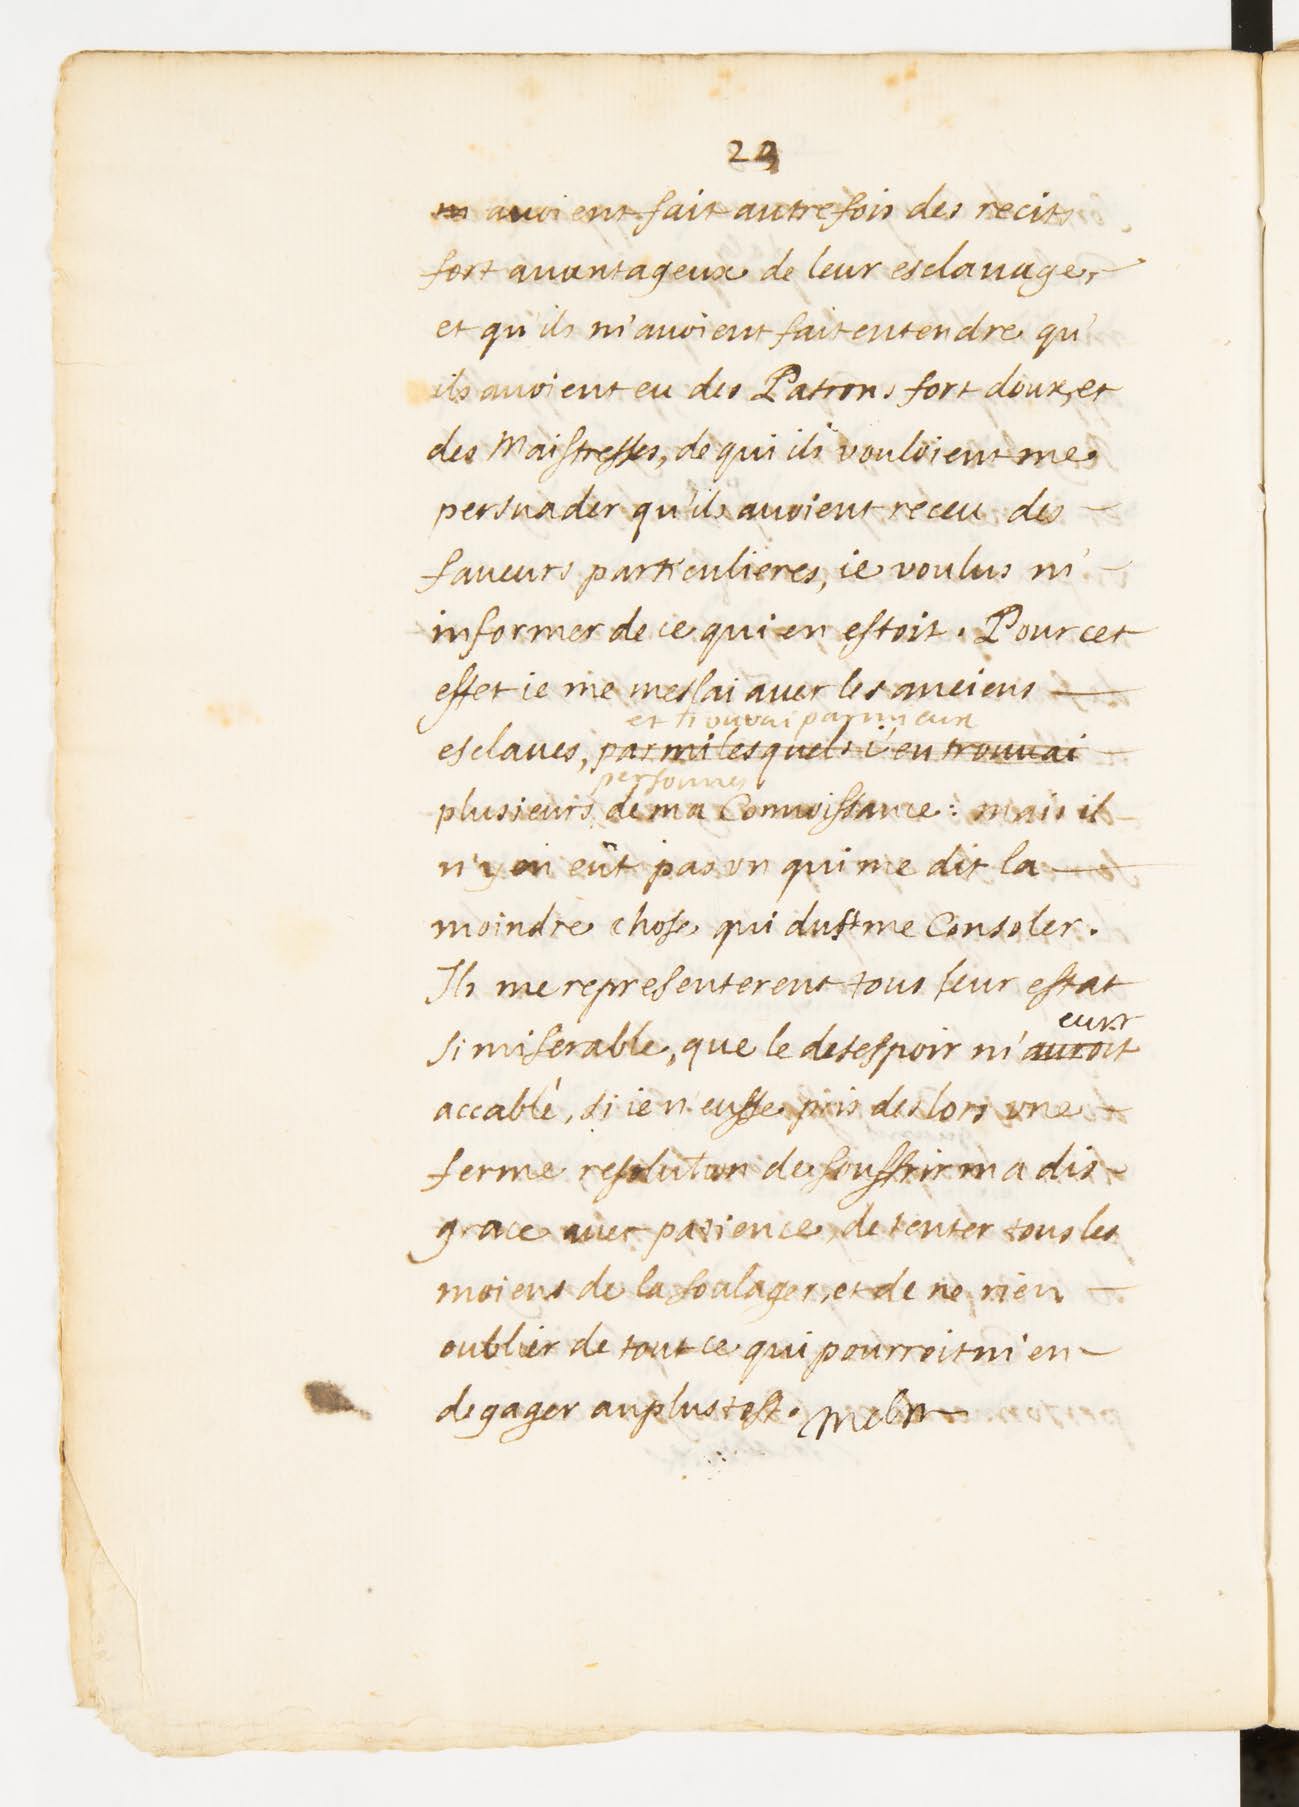 29
m avoient fait autrefois des recits
fort avantageux de leur esclavage,
et qu'ils m'avoient fait entendre qu'
ils avoient eu des Patrons fort doux, et
des Maistresses, de qui ils vouloient me
persuader qu'ils avoient receu des
faveurs particulieres, ie voulus m'
informer de ce qui en estoit. Pour cet
effet ie me meslai avec les anciens
et trouvai parmi eux
esclaves, parmi lesquels i'en trouvai
personnes
plusieurs de ma Connoissance: mais il
n'y en eût pas un qui me dit la
moindre chose qui dust me Consoler.
Ils me representerent tous leur estat
eust
si miserable, que le desespoir m'auroit
accablé, si ie n'eusse pris des lors une
ferme resolution de souffrir ma dis
grace avec patience, de tenter tous les
moiens de la soulager, et de ne rien
oublier de tout ce qui pourroit m'en
degager au plustost.